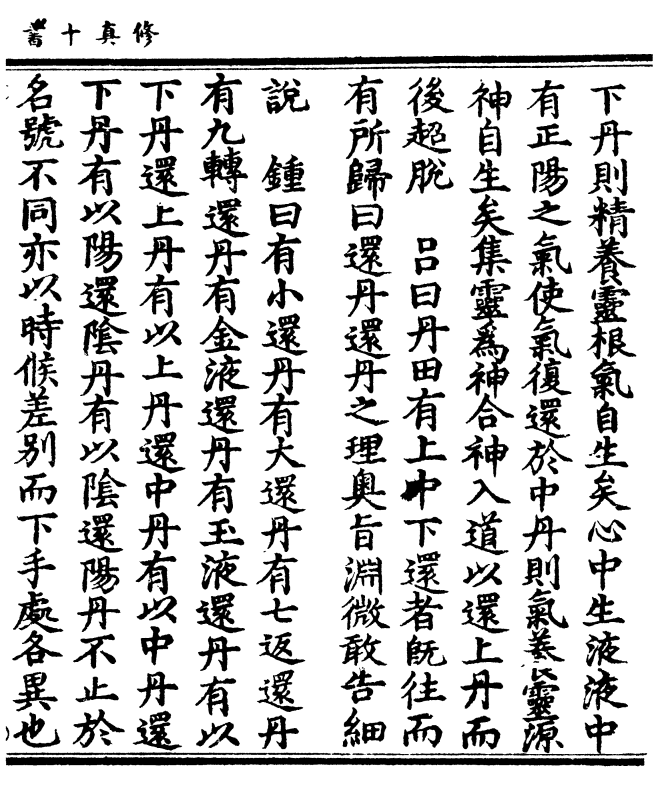 修真十書
下丹則精養靈根氣自生矣心中生液液中
有正陽之氣使氣復還於中丹則氣養靈源
神自生矣集靈為神合神入道以還上丹而
後超脫　呂曰丹田有上中下還者既往而
有所歸曰還丹還丹之理奧旨淵微敢告細
說　鍾曰有小還丹有大還丹有七返還丹
有九轉還丹有金液還丹有玉液還丹有以
下丹還上丹有以上丹還中丹有以中丹還
下丹有以陽還陰丹有以陰還陽丹不止於
名號不同亦以時候差别而下手處各異也